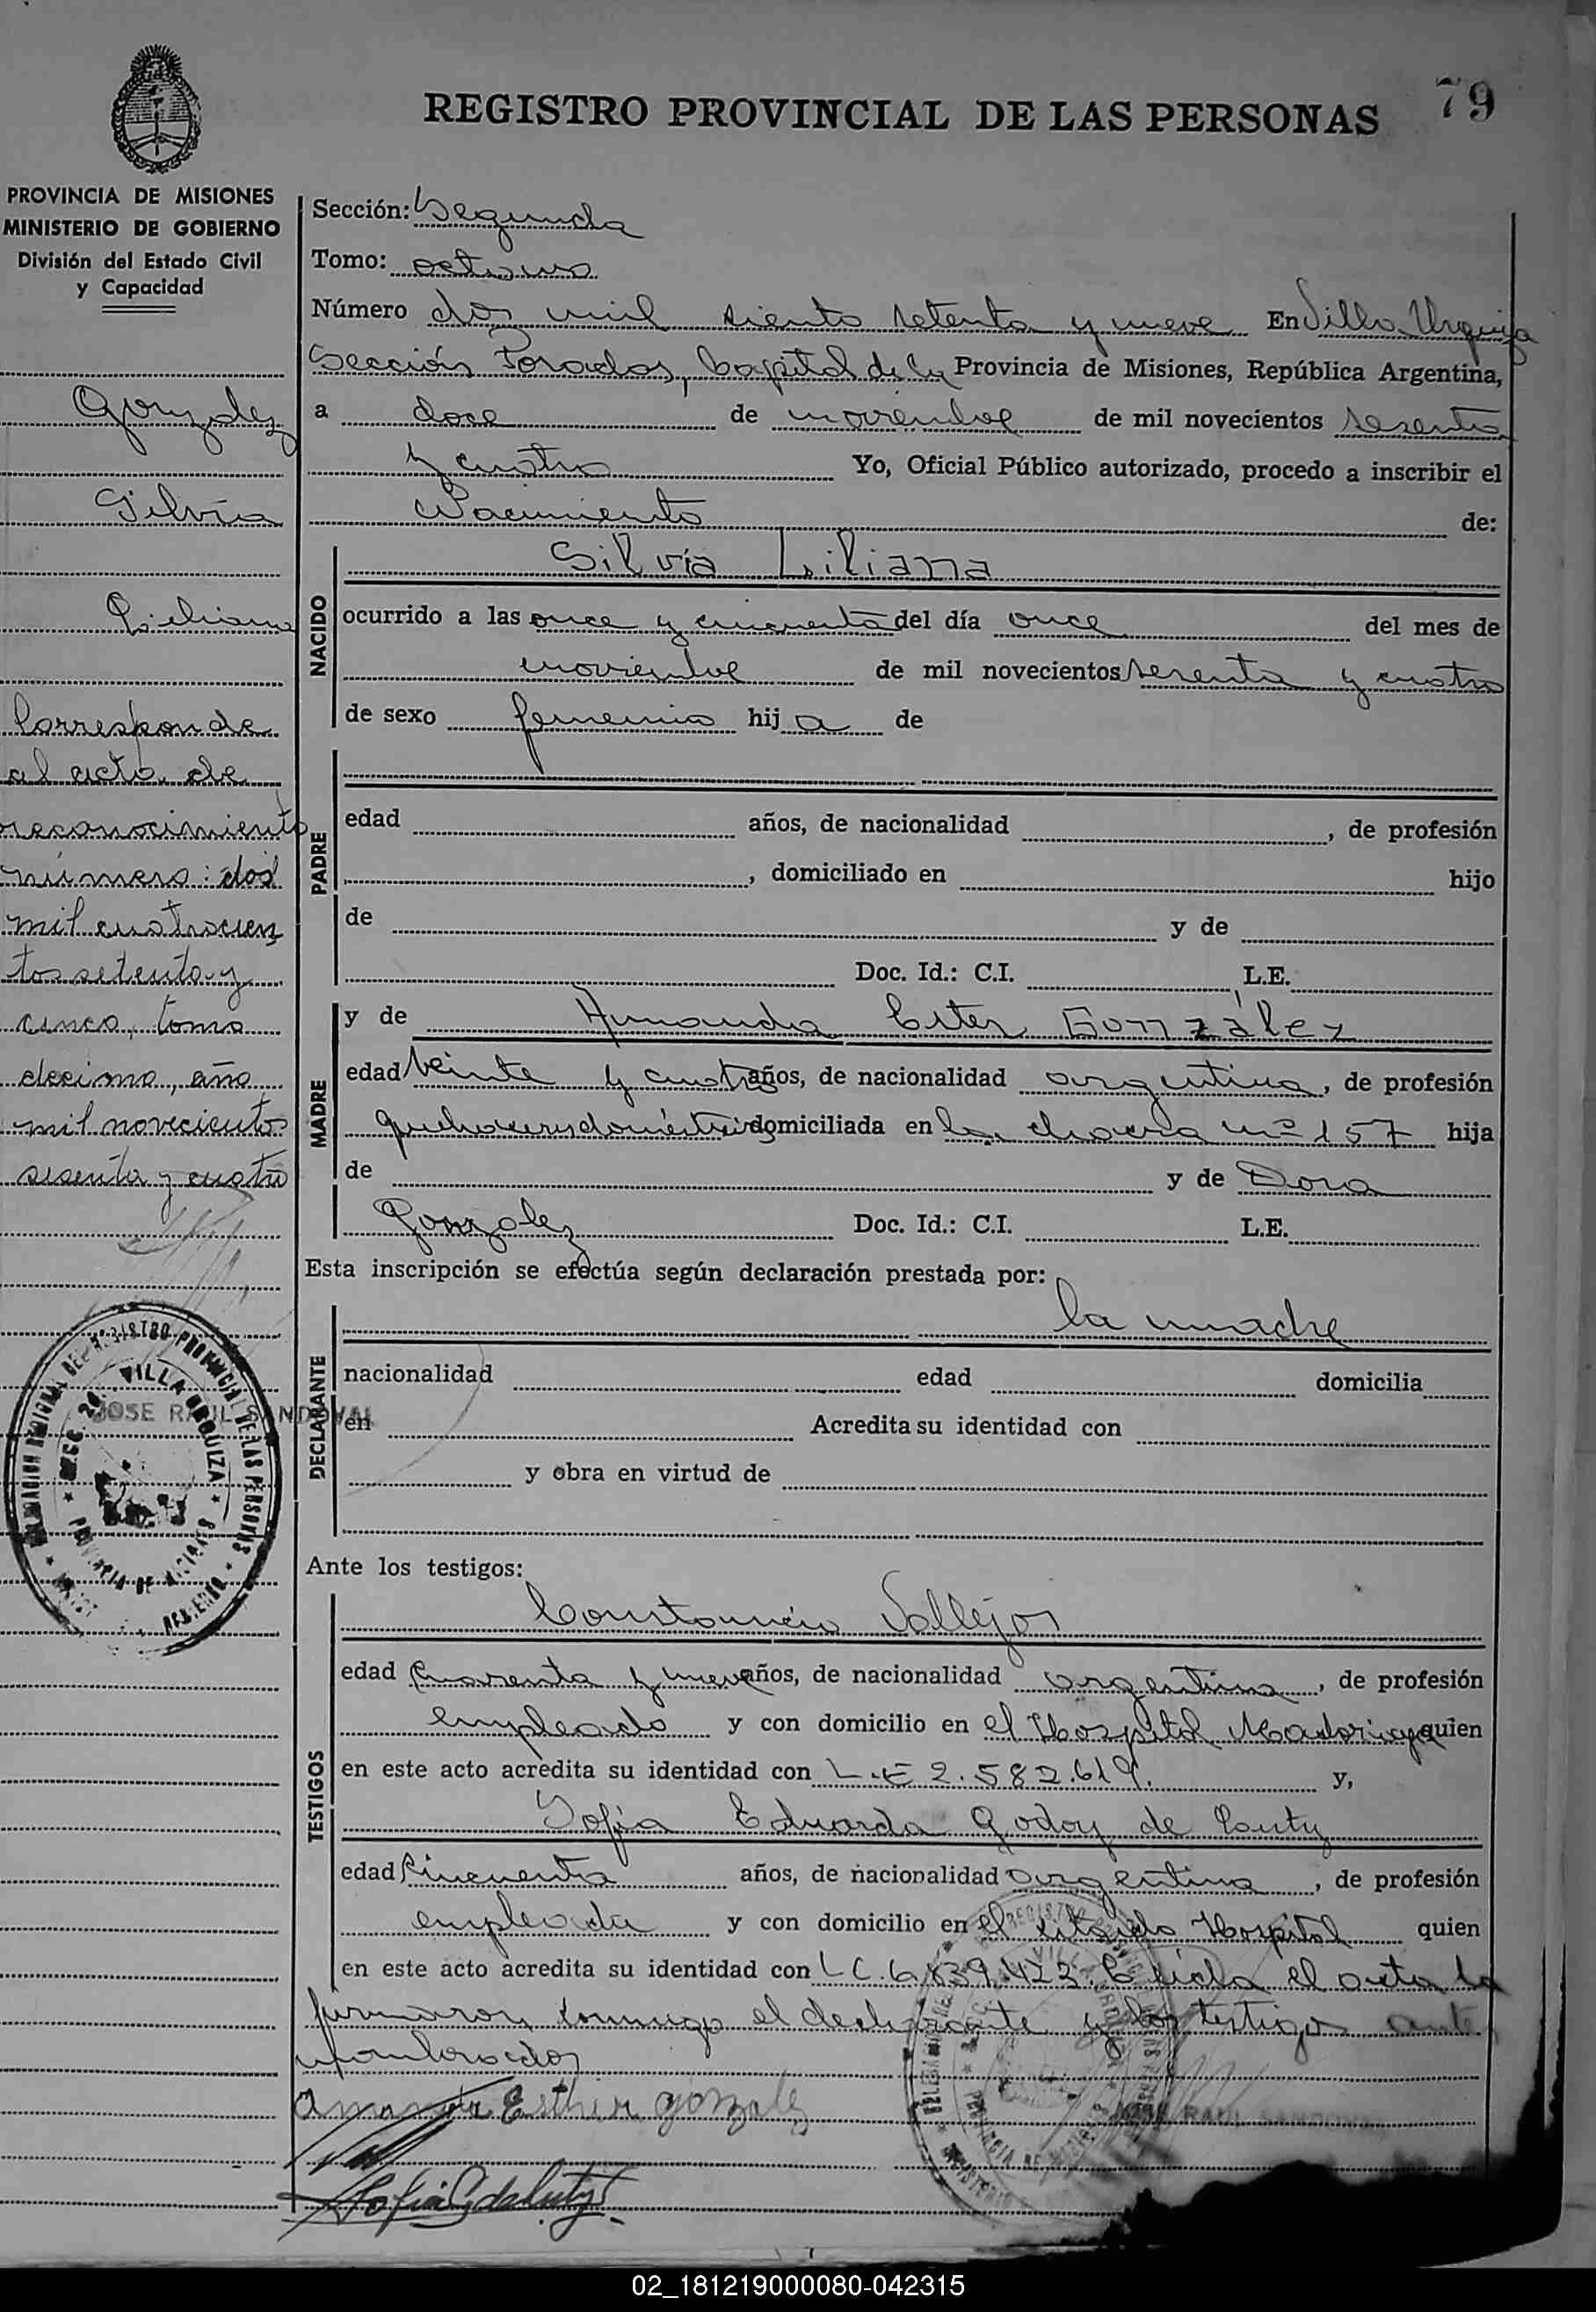 REGISTRO PROVINCIAL DE LAS PERSONAS 79
PROVINCIA DE MISIONES
MINISTERIO DE GOBIERNO
División del Estado Civil
y Capacidad
Gonzalez
Silvia
Liliana
Corresponde
al acta de
reconocimiento
número: dos
mil cuatrocien
tos setenta y
cinco, tomo
decimo, año
mil novecientos
sesenta y cuatro
JOSE RAUL SANDOVAL
DELEGACION REGIONAL DEL REGISTRO PROVINCIAL DE LAS PERSONAS
SECC. 2a. VILLA URQUIZA
PROVINCIA DE MISIONES
Sección: Segunda
Tomo: octavo
Número dos mil siento setenta y nueve En Villa Urquiza
Sección Posadas, Capital de la Provincia de Misiones, República Argentina,
a doce de noviembre de mil novecientos sesenta
y cuatro Yo, Oficial Público autorizado, procedo a inscribir el
Nacimiento de:
NACIDO
Silvia Liliana
ocurrido a las once y cincuenta del día once del mes de
noviembre de mil novecientos sesenta y cuatro
de sexo femenino hija de
PADRE
edad años, de nacionalidad , de profesión
, domiciliado en hijo
de y de
Doc. Id.: C.I. L.E.
MADRE
y de Amanda Ester González
edad Veinte y cuatro años, de nacionalidad argentina, de profesión
quehaceres domésticos domiciliada en la chacra nº 157 hija
de y de Dora
Gonzalez Doc. Id.: C.I. L.E.
Esta inscripción se efectúa según declaración prestada por:
DECLARANTE
la madre
nacionalidad edad domicilia
en Acredita su identidad con
y obra en virtud de
Ante los testigos:
TESTIGOS
Constancio Vallejos
edad Cuarenta y nueve años, de nacionalidad argentina, de profesión
empleado y con domicilio en el Hospital Madariaga quien
en este acto acredita su identidad con L.E 2.582.619. y,
Sofia Eduarda Godoy de Cauty
edad Cincuenta años, de nacionalidad argentina, de profesión
empleada y con domicilio en el citado Hospital quien
en este acto acredita su identidad con L C. 6.839.423. el acta la
firmaron conmigo el declarante y los testigos ante
nombrados
Amanda Esther gonzalez
JOSE RAUL SANDOVAL
02_181219000080-042315